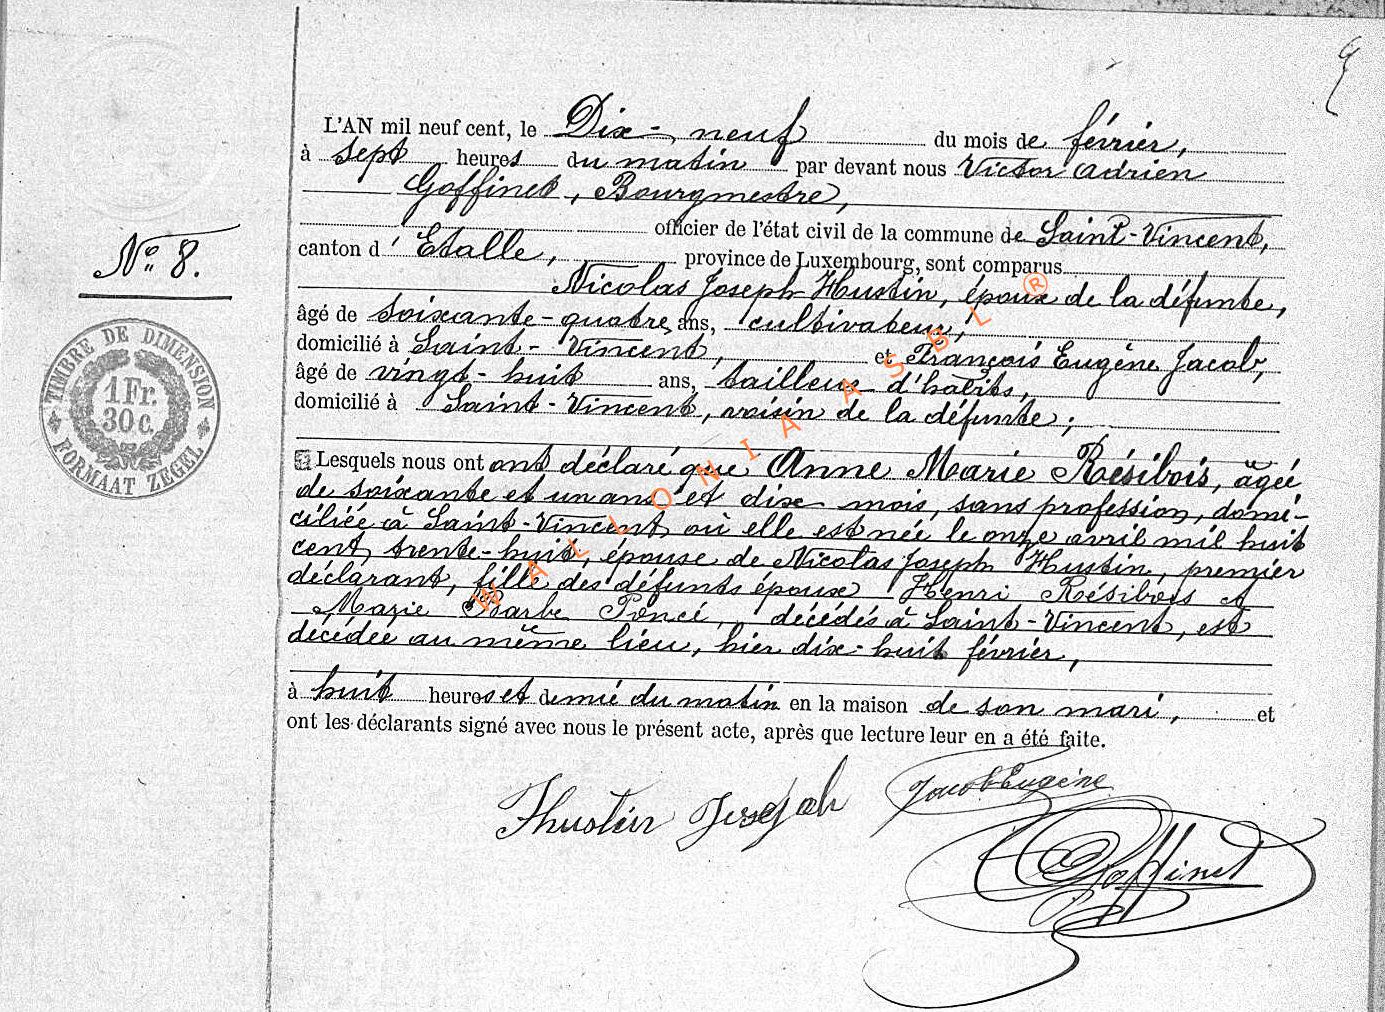 L'AN mil neuf cent, le Dix-neuf du mois de février,
à sept heures du matin par devant nous Victor Adrien
Goffinet, Bourgmestre,
officier de l'état civil de la commune de Saint-Vincent,
N° 8.
canton d' Etalle, province de Luxembourg, sont comparus
Nicolas Joseph Hustin, époux de la défunte,
âgé de soixante-quatre ans, cultivateur,
domicilié à Saint-Vincent, et François Eugène Jacob,
âgé de vingt-huit ans, tailleur d'habits,
domicilié à Saint-Vincent, voisin de la défunte;
TIMBRE DE DIMENSION
1 Fr.
30 C.
FORMAAT ZEGEL
Lesquels nous ont ont déclaré que Anne Marie Résibois, âgée
de soixante et un ans et dix mois, sans profession, domi-
ciliée à Saint-Vincent où elle est née le onze avril mil huit
cent trente-huit, épouse de Nicolas Joseph Hustin, premier
déclarant, fille des défunts époux Henri Résibois et
Marie Barbe Poncé, décédés à Saint-Vincent, est
décédée au même lieu, hier dix-huit février,
à huit heures et demie du matin en la maison de son mari, et
ont les déclarants signé avec nous le présent acte, après que lecture leur en a été faite.
Hustin Joseph Jacob Eugène
Goffinet
WALLONIA ASBL ®